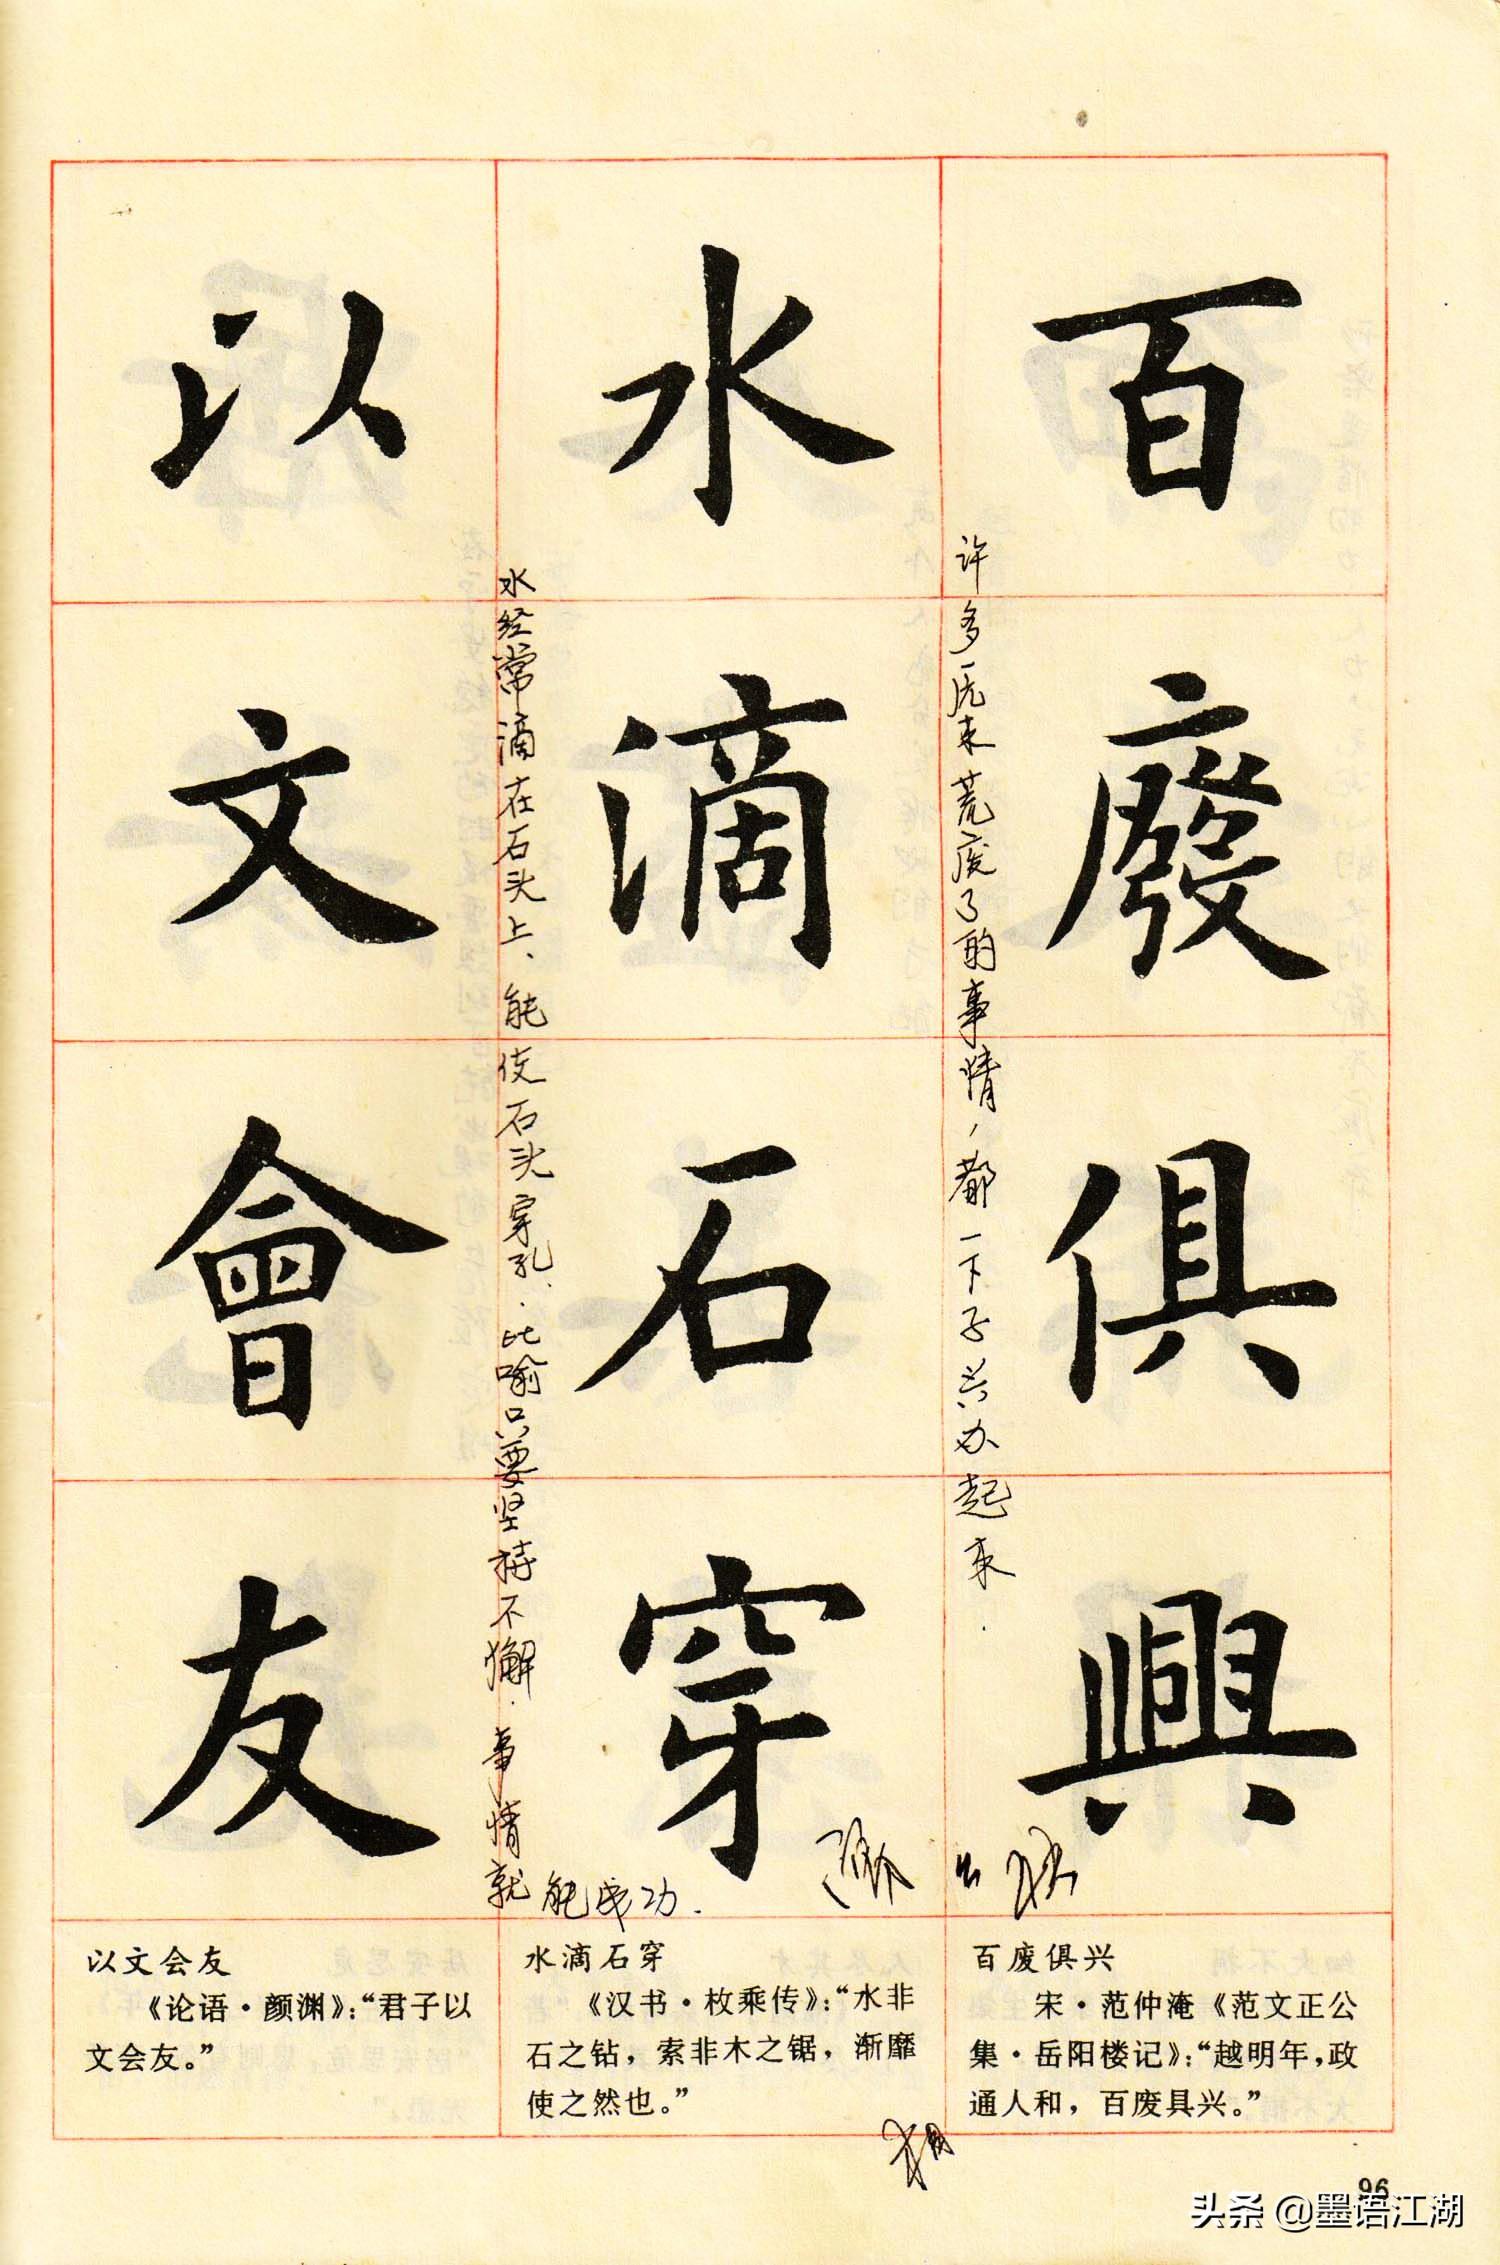 百廢俱興
许多原来荒废了的事情，都一下子兴办起来．
水滴石穿
水经常滴在石头上、能使石头穿孔．比喻只要坚持不懈．事情就
能成功．
以文會友
百废俱兴
宋·范仲淹《范文正公
集·岳阳楼记》：“越明年，政
通人和，百废具兴。”
水滴石穿
《汉书·枚乘传》：“水非
石之钻，索非木之锯，渐靡
使之然也。”
以文会友
《论语·颜渊》：“君子以
文会友。”
96
头条 @墨语江湖